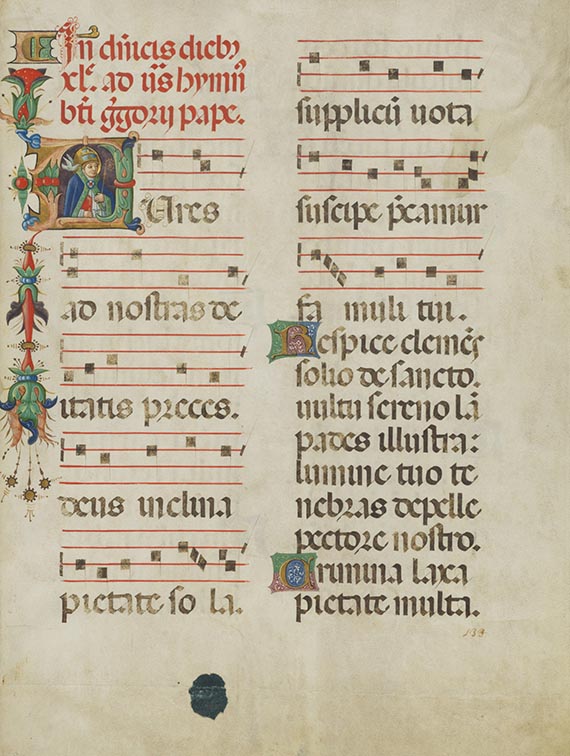 In dñicis dieb9
xl.ͤ ad ũs hymñ
bt̃i g̃gorij pape.
AUres
ad nostras de
itatis preces.
deus inclina
pietate so la.
supplicũ uota
suscipe p̃camur
fa muli tui.
Respice clemẽs
solio de sancto.
uultu sereno lã
pades illustra:
lumine tuo te
nebras depelle
pectore nostro.
Crimina laxa
pietate multa.